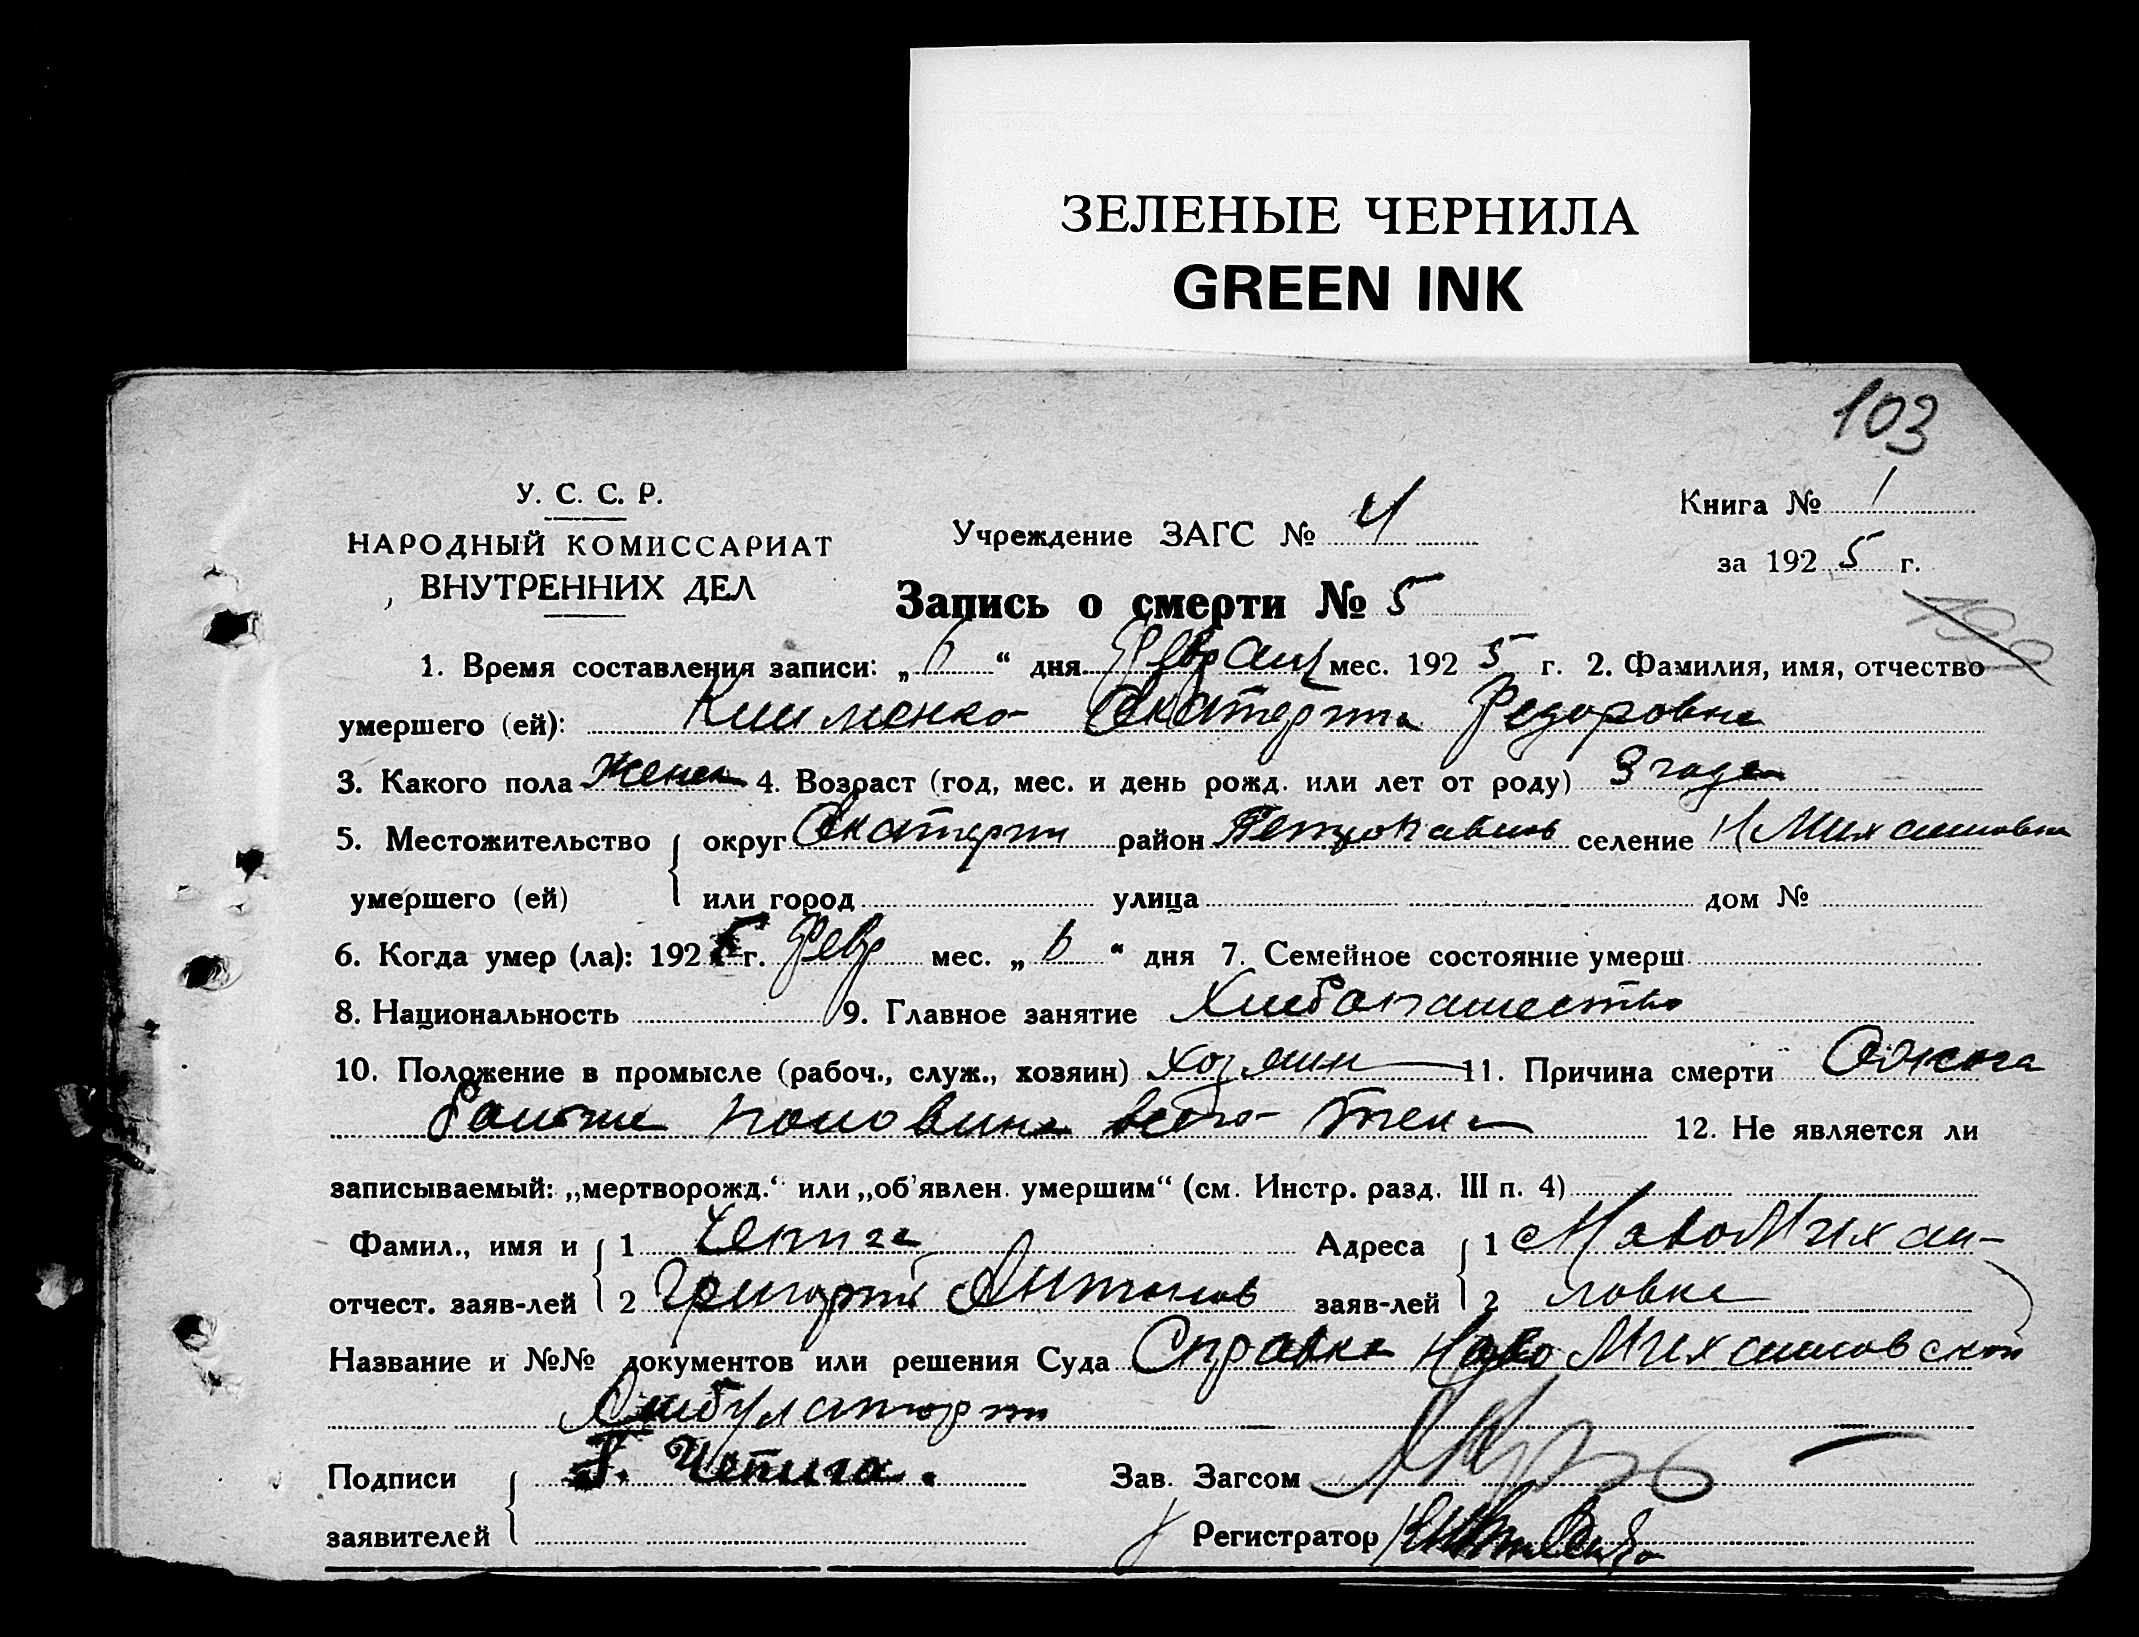 ЗЕЛЕНЫЕ ЧЕРНИЛА
GREEN INK
103
У. С. С. Р.
НАРОДНЫЙ КОМИССАРИАТ
ВНУТРЕННИХ ДЕЛ
Учреждение ЗАГС № 4
Книга № 1
за 1925 г.
Запись о смерти № 5
1. Время составления записи: „6“ дня Февраля мес. 1925 г. 2. Фамилия, имя, отчество
умершего (ей): Клименко Екатерина Федоровна
3. Какого пола Женск 4. Возраст (год, мес. и день рожд. или лет от роду) 3 года
5. Местожительство умершего (ей) округ Екатерин район Петропавлов селение Н Михайловка
или город улица дом №
6. Когда умер (ла): 1925 г. Февр мес. „6“ дня 7. Семейное состояние умерш.
8. Национальность 9. Главное занятие Хлебопашество
10. Положение в промысле (рабоч., служ., хозяин) хозяин 11. Причина смерти Ожога
больше половины всего тела 12. Не является ли
записываемый: „мертворожд.“ или „об'явлен. умершим“ (см. Инстр. разд. III п. 4)
Фамил., имя и отчест. заяв-лей 1 Чепига
2 Григорий Антонов
Адреса заяв-лей 1 Ново Михай-
2 ловка
Название и №№ документов или решения Суда Справка Ново Михайловской
Амбулатории
Подписи заявителей Г. Чепига.
Зав. Загсом
Регистратор